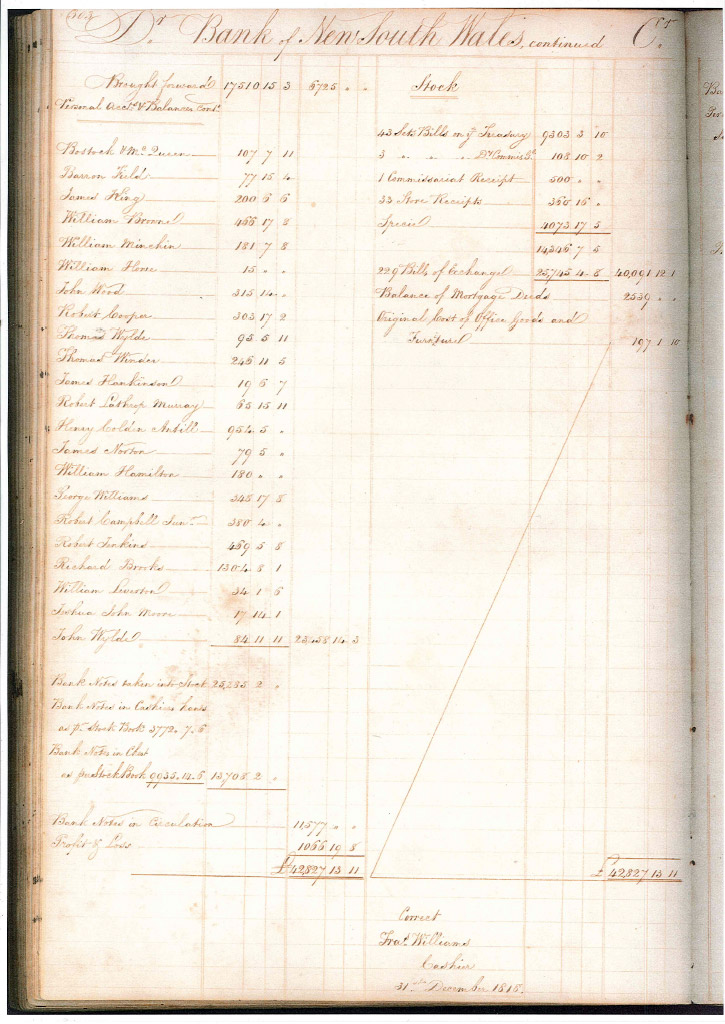 Dr Bank of New South Wales, continued Cr
Brought forward 17510 15 3 6725 " "
Personal Accts & Balances Contd
Bostock & Mc Queen 107 7 11
Barron Field 77 15 4
James King 200 6 6
William Browne 466 17 8
William Minchin 181 7 8
William Howe 15 " "
John Wood 315 14 "
Robert Cooper 303 17 2
Thomas Wylde 95 5 11
Thomas Winder 246 11 5
James Hankinson 19 6 7
Robert Lathrop Murray 65 15 11
Henry Colden Antill 954 5 "
James Norton 79 5 "
William Hamilton 180 " "
George Williams 348 17 8
Robert Campbell Junr 380 4 "
Robert Jenkins 459 5 8
Richard Brooks 1304 8 1
William Leverton 34 1 6
Joshua John Moore 17 14 1
John Wylde 84 11 11 23458 14 3
Bank Notes taken into Stock 25285 2 "
Bank Notes in Cashiers hands
as pr Stock Book 3772. 7. 6
Bank Notes in Chest
as pr Stock Book 9935. 14. 6 13708 2 "
Bank Notes in Circulation 11577 " "
Profit & Loss 1066 19 8
£42827 13 11
Stock
43 Setts Bills on ye Treasury 9303 3 10
3 " " " Dy Commisy 108 10 2
1 Commissariat Receipt 500 " "
33 Store Receipts 360 16 "
Specie 4073 17 5
14346 7 5
229 Bills of Exchange 25745 4 8 40,091 12 1
Balance of Mortgage Deeds 2539 " "
Original Cost of Office Goods and
Furniture 197 1 10
£42827 13 11
Correct
Fras Williams
Cashier
31st December 1818.